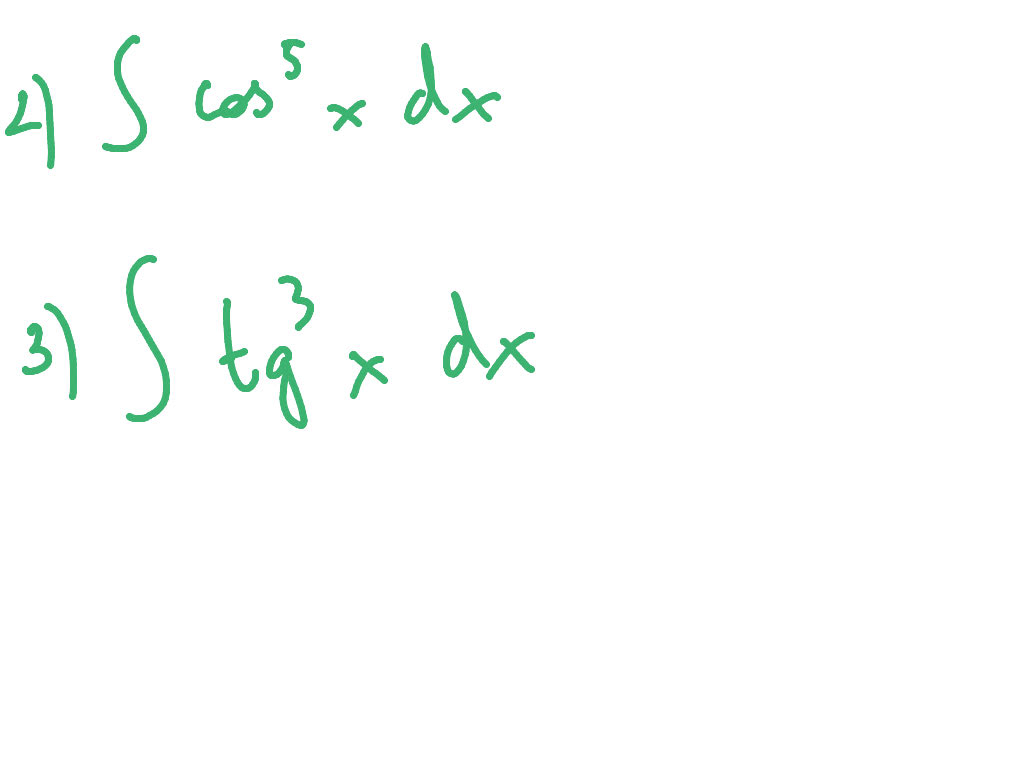 2) ∫ cos⁵ x dx
3) ∫ tg³ x dx